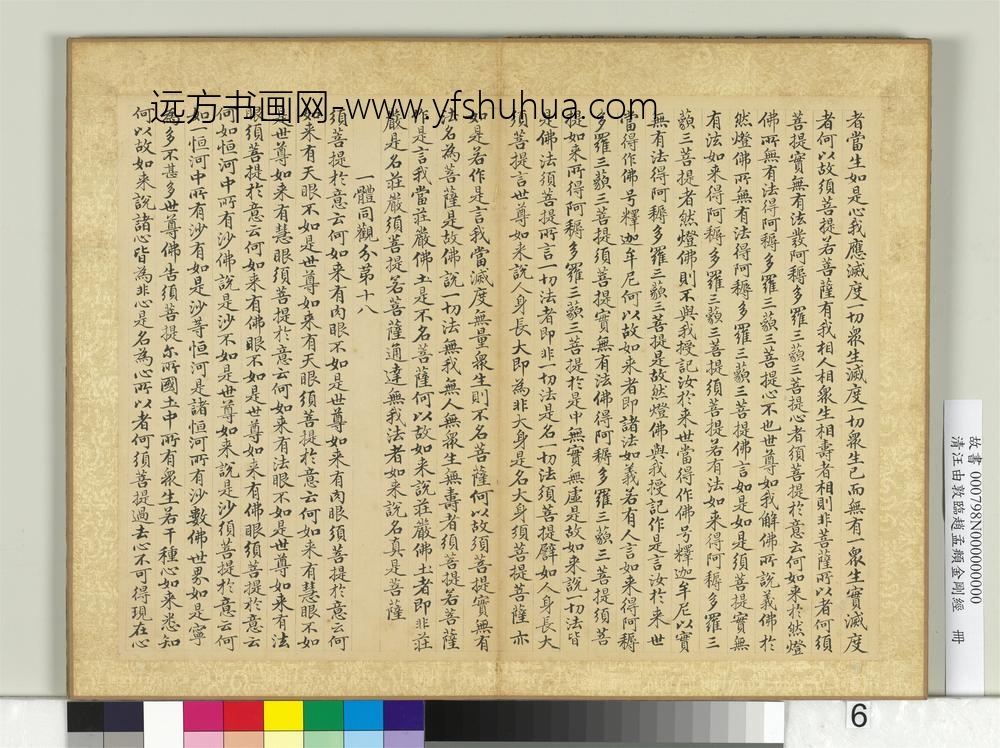 者當生如是心我應滅度一切眾生滅度一切眾生已而無有一眾生實滅度
者何以故須菩提若菩薩有我相人相眾生相壽者相則非菩薩所以者何須
菩提實無有法發阿耨多羅三藐三菩提心者須菩提於意云何如來於然燈
佛所無有法得阿耨多羅三藐三菩提心不也世尊如我解佛所說義佛於
然燈佛所無有法得阿耨多羅三藐三菩提佛言如是如是須菩提實無
有法如來得阿耨多羅三藐三菩提須菩提若有法如來得阿耨多羅三
藐三菩提者然燈佛則不與我授記汝於來世當得作佛号釋迦牟尼以實
無有法得阿耨多羅三藐三菩提是故然燈佛與我授記作是言汝於來世
當得作佛号釋迦牟尼何以故如來者即諸法如義若有人言如來得阿耨
多羅三藐三菩提須菩提實無有法佛得阿耨多羅三藐三菩提須菩
提如來所得阿耨多羅三藐三菩提於是中無實無虛是故如來說一切法皆
是佛法須菩提所言一切法者即非一切法是名一切法須菩提譬如人身長大
須菩提言世尊如來說人身長大即為非大身是名大身須菩提菩薩亦
如是若作是言我當滅度無量眾生則不名菩薩何以故須菩提實無有
法名為菩薩是故佛說一切法無我無人無眾生無壽者須菩提若菩薩
作是言我當莊嚴佛土是不名菩薩何以故如來說莊嚴佛土者即非莊
嚴是名莊嚴須菩提若菩薩通達無我法者如來說名真是菩薩
一體同觀分第十八
須菩提於意云何如來有肉眼不如是世尊如來有肉眼須菩提於意云何
如來有天眼不如是世尊如來有天眼須菩提於意云何如來有慧眼不如
是世尊如來有慧眼須菩提於意云何如來有法眼不如是世尊如來有法
眼須菩提於意云何如來有佛眼不如是世尊如來有佛眼須菩提於意云
何如恒河中所有沙佛說是沙不如是世尊如來說是沙須菩提於意云何
如一恒河中所有沙有如是沙等恒河是諸恒河所有沙數佛世界如是寧
為多不甚多世尊佛告須菩提尒所國土中所有眾生若干種心如來悉知
何以故如來說諸心皆為非心是名為心所以者何須菩提過去心不可得現在心
远方书画网-www.yfshuhua.com
故書000798N000000000
清汪由敦臨趙孟頫金剛經 冊
6